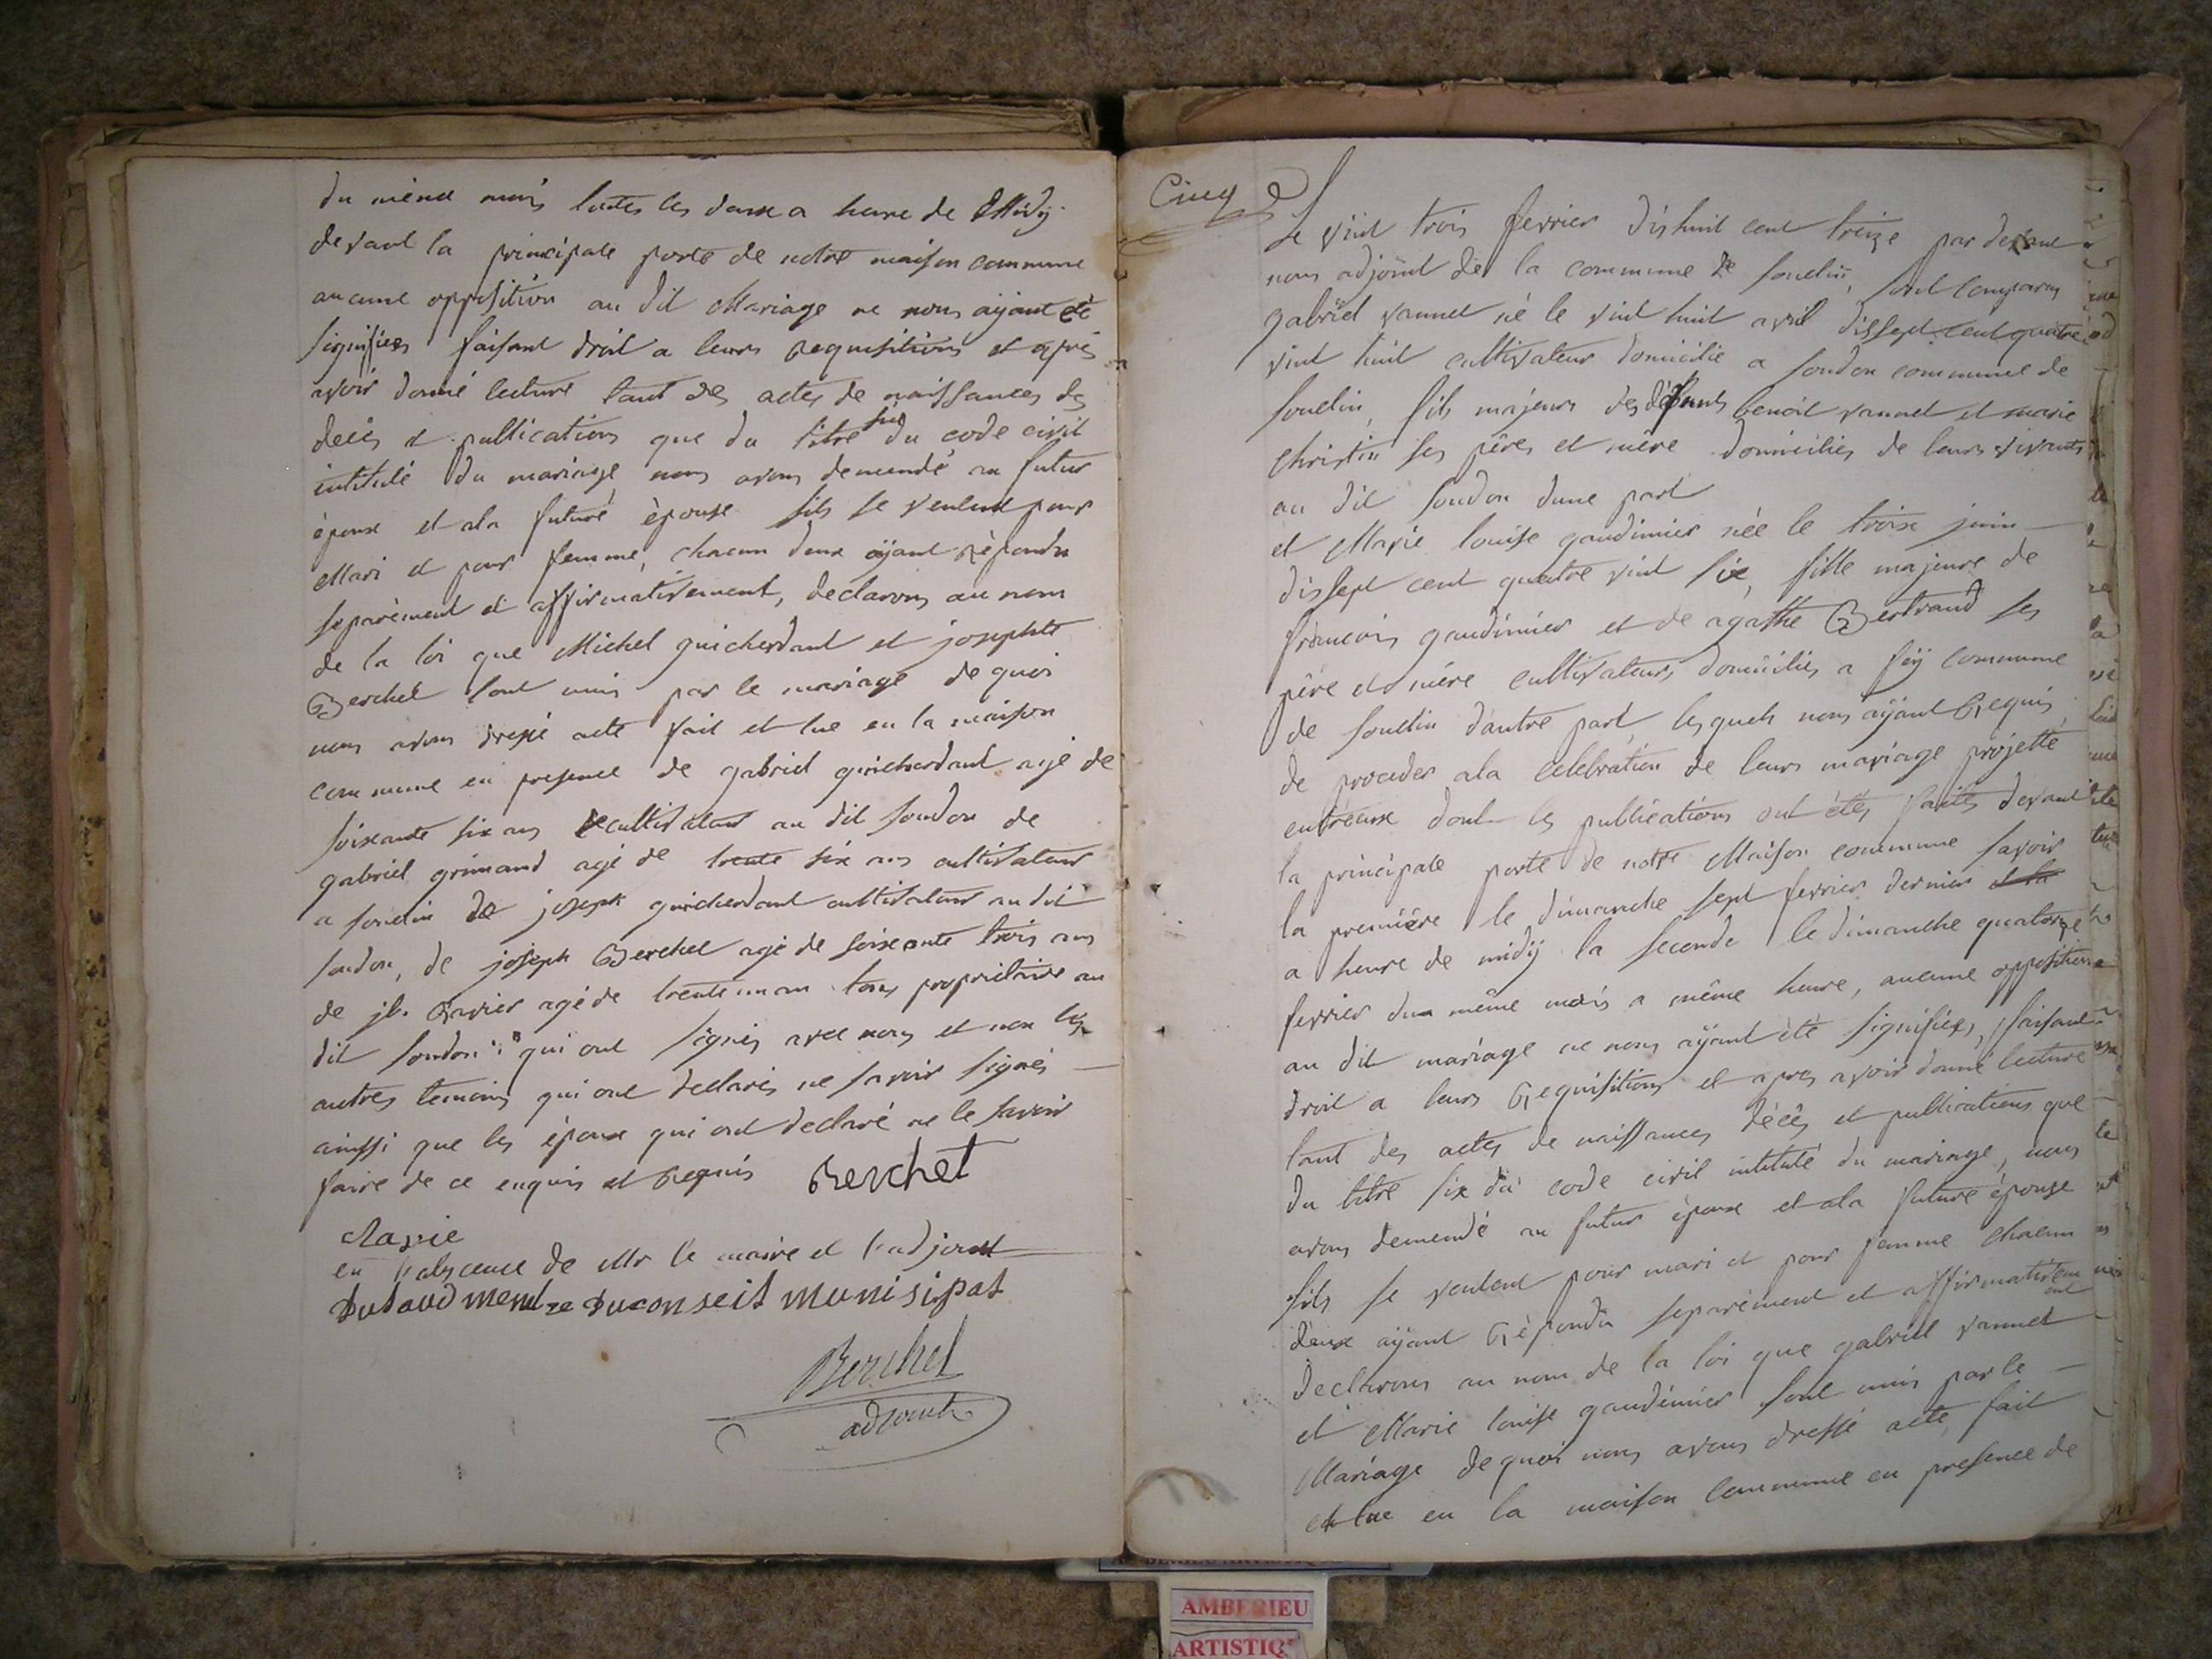 du même mois toutes les deux a heure de Midy
devant la principale porte de notre maison commune
aucune opposition au dit Mariage ne nous aÿant été
signifiées faisant droit a leurs requisitions et après
avoir donné lecture tant des actes de naissances des
decès et publications que du titre six du code civil
intitulé du mariage nous avons demandé au futur
époux et ala future épouse sils se veulent pour
Mari et pour femme, chacun deux aÿant répondu
separément et affirmativement, declarons au nom
de la loi que Michel guicherdant et josephte
Berchet sont unis par le mariage de quoi
nous avons dressé acte fait et lue en la maison
commune en presence de gabriel guicherdant agé de
soixante six ans cultivateur au dit soudon de
gabriel grimand agé de trente six ans cultivateur
a souclin de joseph guicherdant cultivateur au dit
soudon, de joseph Berchet agé de soixante trois ans
de jh. Ravier agé de trente un an tous propriétaire au
dit soudon qui ont signés avec nous et non les
autres temoins qui ont declarés ne savoir signés
ainssi que les époux qui ont declaré ne le savoir
faire de ce enquis et requis Berchet
Ravie
en l'abscence de Mr le maire et l'adjoint
Dutaud membre Du conseil munisipal
Berchet
adjoint
Cinq
Le vint trois fevrier dishuit cent treize par devant
nous adjoint de la commune de souclin, sont comparus
gabriel vannet né le vint huit avril dissept cent quatre
vint huit cultivateur domicilié a soudon commune de
souclin, fils majeurs des défunts benoit vannet et marie
christin ses pères et mère domiciliés de leurs vivants
au dit soudon dune part
et Marie louise gaudinier née le troix juin
dissept cent quatre vint six, fille majeure de
francois gaudinier et de agathe Bertrand ses
père et mère cultivateurs domiciliés a fÿ commune
de souclin d'autre part, lesquels nous aÿant Requis
de proceder ala celebration de leurs mariage projetté
entréeux dont les publications ont étés faites devant
la principale porte de notre Maison commune savoir
la première le dimanche sept fevrier dernier et la
a heure de midÿ la seconde le dimanche quatorze
fevrier du même mois a même heure, aucune opposition
au dit mariage ne nous aÿant été signifiées, faisant
droit a leurs Requisitions et apres avoir donné lecture
tant des actes de naissances décès et publications que
du titre six du code civil intitulé du mariage, nous
avons demendé au futur époux et ala future épouse
sils se veulent pour mari et pour femme chacun
deux aÿant Répondu separément et affirmativem
ent
declarons au nom de la loi que gabriel vannet
et Marie louise gaudinier sont unis par le
Mariage de quoi nous avons dressé acte, fait
et lue en la maison commune en presence de
AMBERIEU
ARTISTIQ